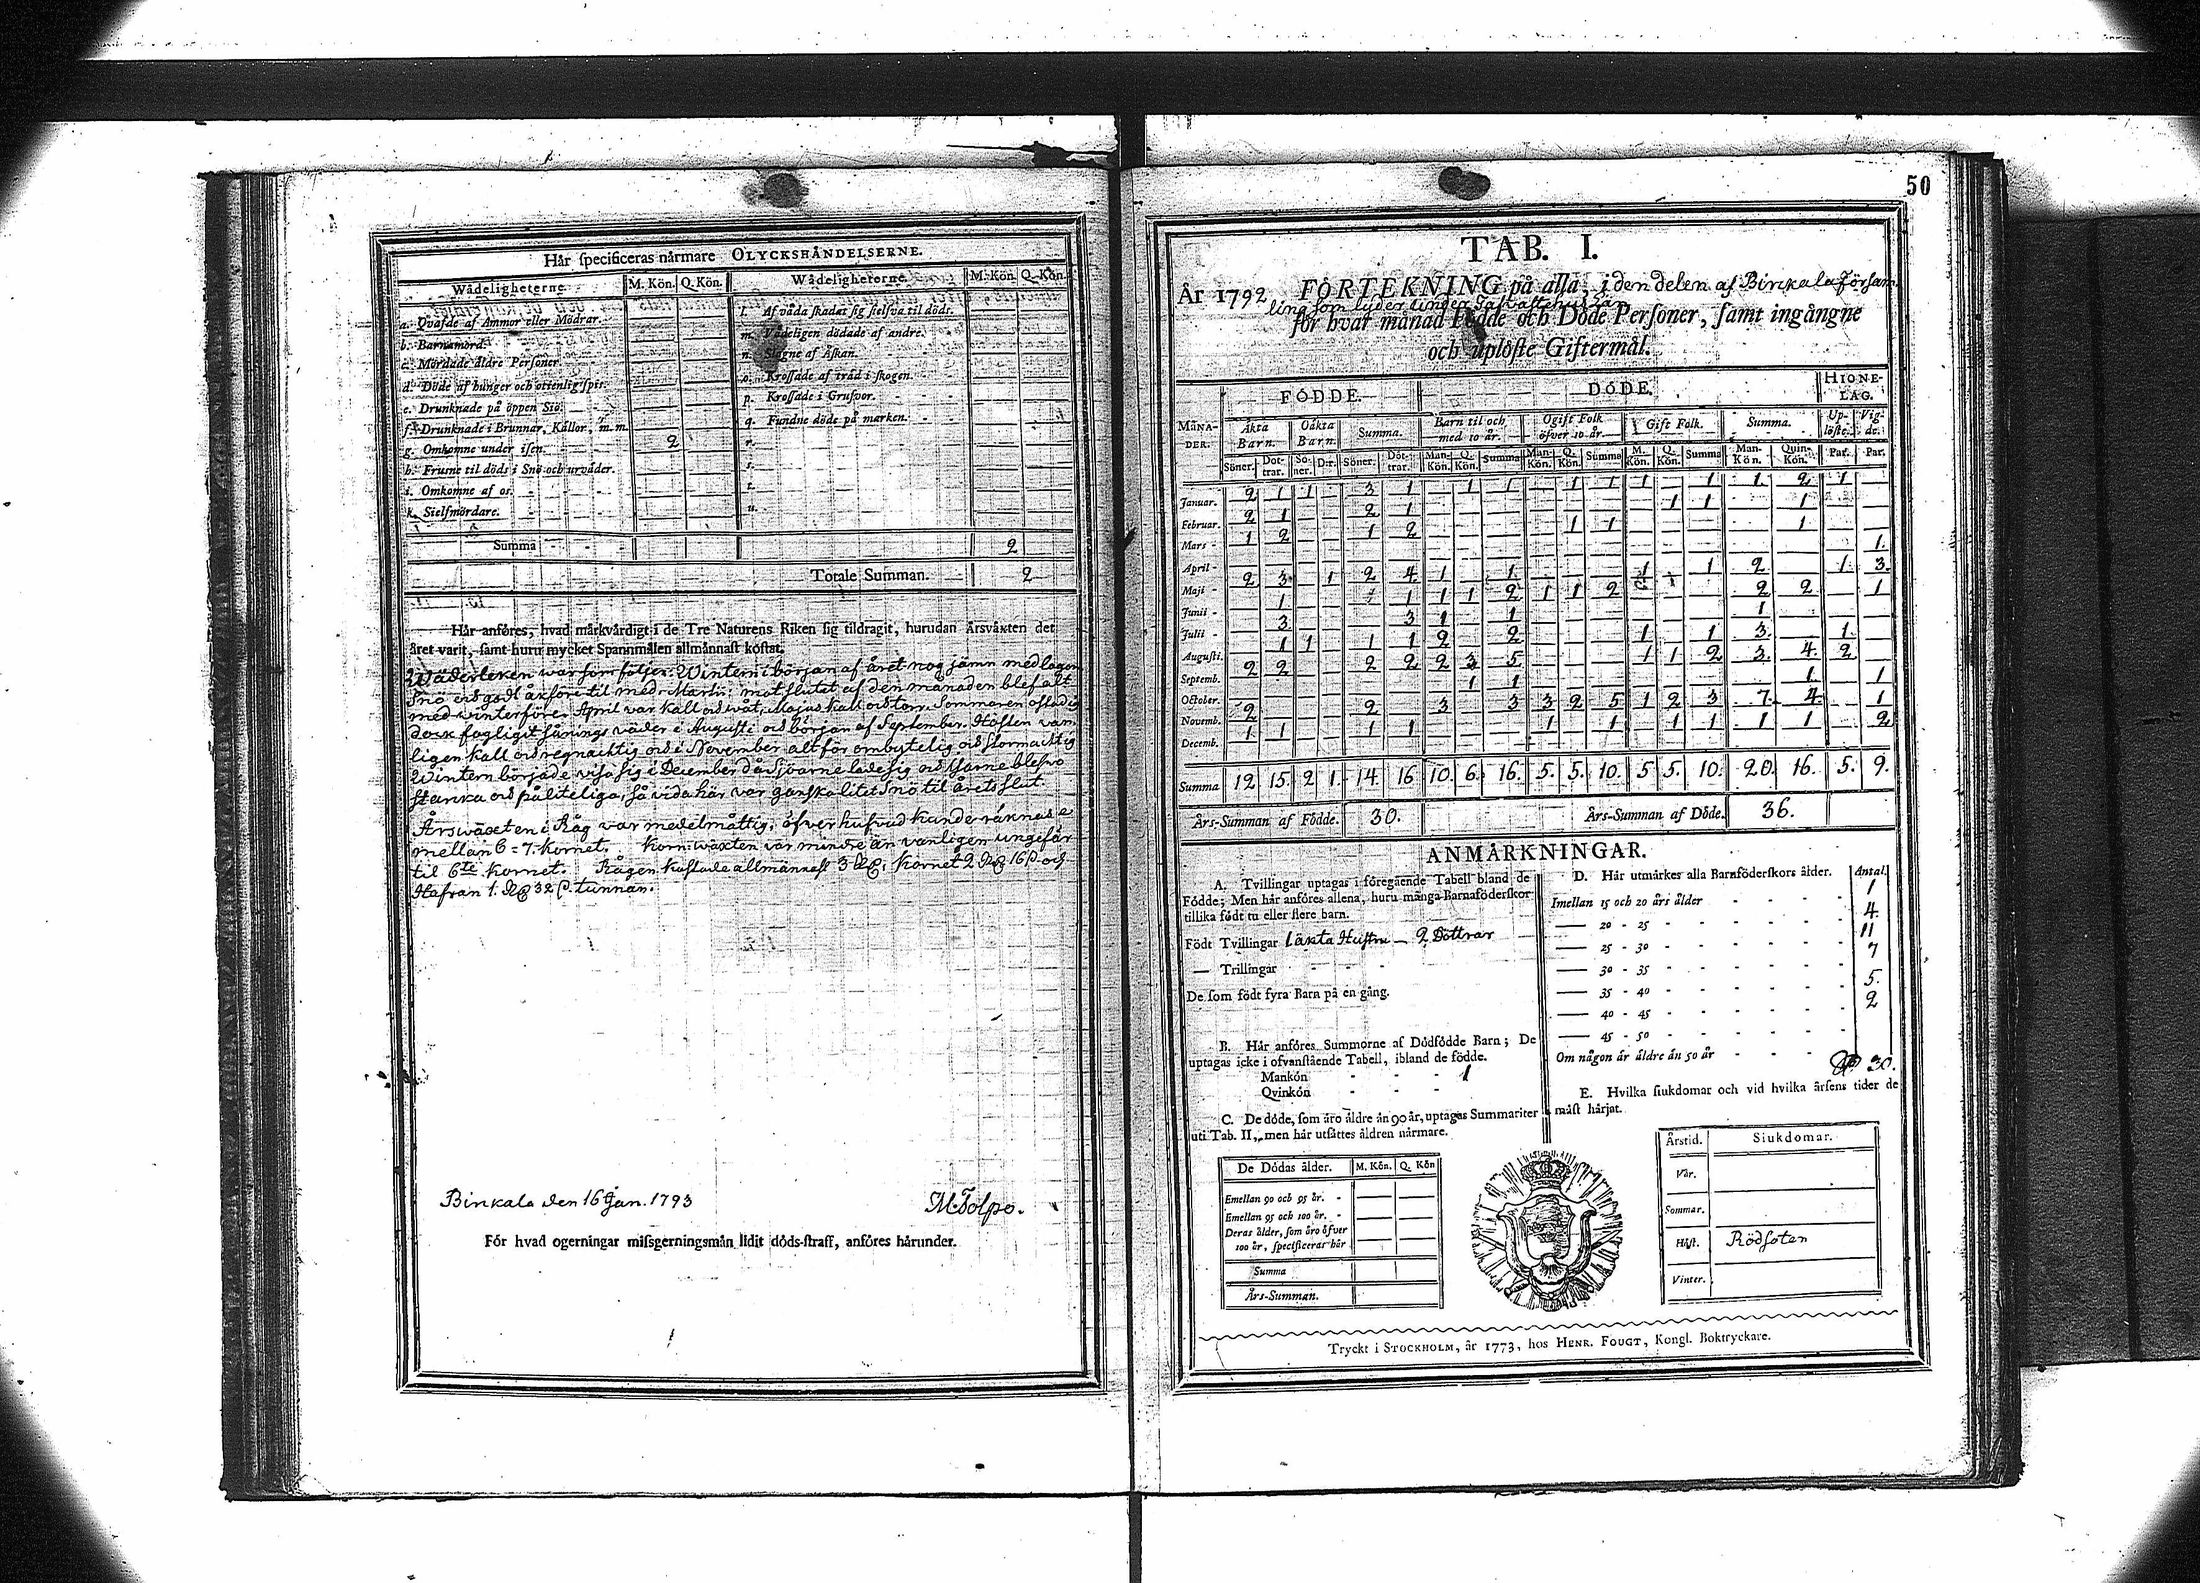 Hår specificeras nårmare OLYCKSHÅNDELSERNE.
Wådeligheterne. M. Kön. Q. Kön. Wådeligheterne. M. Kön. Q. Kön.
a. Qvafde af Ammor eller Mödrar.
b. Barnamord.
c. Mördade äldre Personer
d. Döde af hunger och otienlig spis.
e. Drunknade på öppen Siö.
f. Drunknade i Brunnar, Källor, m. m.
g. Omkomne under isen. 2
h. Frusne til döds i Snö och urväder.
i. Omkomne af os.
k. Sielfmördare.
l. Af våda skadat sig sielfva til döds.
m. Vådeligen dödade af andre.
n. Slagne af Åskan.
o. Krossade af träd i skogen.
p. Krossade i Grufvor.
q. Fundne döde på marken.
r.
s.
t.
u.
Summa 2
Totale Summan. 2
Hår anföres, hvad märkvärdigt i de Tre Naturens Riken sig tildragit, hurudan Årsväxten det
året varit, samt huru mycket Spannmålen allmännast kostat.
Wäderleken war som följer: Wintern i början af året nog jämn med lagom
Snö och godt åkföre til med. Martii; mot slutet af den månaden blef alt
med winterföre. April var kall och wåt, Majus kall och torr. Sommaren ostadig
dock fogligit bärnings väder i Augusti och början af September. Hösten van-
ligen kall och regnachtig och i November alt för ombytelig och stormachtig
Wintern började visa sig i December då Sjöarne lade sig och Isarne blefvo
starka och påliteliga, så vida här var ganska litet Snö til årets slut.
Årswäxten i Råg var medelmåttig, öfver hufvud kunde räknas
mellan 6 = 7. kornet. Korn-wäxten var mindre än vanligen ungefär
til 6te kornet. Rågen kostade allmännast 3 Rd; Kornet 2 Rd 16 ß och
Hafran 1. Rd 32 ß. tunnan.
Binkala den 16 Jan. 1793
M. Tolpo.
För hvad ogerningar missgerningsmän lidit döds-straff, anföres hårunder.
50
TAB. I.
År 1792 FÖRTEKNING på alla, i den delen af Binkala Försam
ling som lyder under Tavastehus Län
för hvar månad Födde och Döde Personer, samt ingångne
och uplöste Giftermål.
FÖDDE. DÖDE. HIONE-LAG.
MÅNA-DER. Äkta Barn. Oäkta Barn. Summa. Barn til och med 10 år. Ogift Folk öfver 10 år. Gift Folk. Summa. Up-löste. Vig-de.
Söner. Döt-trar. Sö-ner. Dr. Söner. Döt-trar. Man-Kön. Q. Kön. Summa Man-Kön. Q. Kön. Summa M. Kön. Q. Kön. Summa Man-Kön. Quin-Kön. Par. Par.
Januar. 2 1 1 3 1 1 1 1 1 1 1 1 2 1
Februar. 2 1 2 1 1 1 1
Mars 1 2 1 2 1 1 1
April 1.
Maji 2 3 1 2 4 1 1 1 1 2 1 3.
Junii 1 1 1 1 2 1 1 2 2 2 1
Julii 3 3 1 1 1
Augusti. 1 1 1 1 2 2 1 1 3. 1
Septemb. 2 2 2 2 2 3 5 1 1 2 3. 4. 2
October. 1 1 1 1
Novemb. 2 2 3 3 3 2 5 1 2 3 7. 4. 1
Decemb. 1 1 1 1 1 1 1 1 1 1 2
Summa 12 15. 2 1. 14. 16 10. 6. 16. 5. 5. 10. 5 5. 10. 20. 16. 5. 9.
Års-Summan af Födde. 30. Års-Summan af Döde. 36.
ANMÄRKNINGAR.
A. Tvillingar uptagas i föregående Tabell bland de
Födde; Men här anföres allena, huru många Barnaföderskor
tillika födt tu eller flere barn.
Födt Tvillingar 1 äkta Hustru — 2 Döttrar
— Trillingar
De som födt fyra Barn på en gång.
B. Hår anföres Summorne af Dödfödde Barn; De
uptagas icke i ofvanstående Tabell, ibland de födde.
Mankön 1
Qvinkön
C. De döde, som äro äldre än 90 år, uptagas Summariter
uti Tab. II., men här utsättes åldren närmare.
De Dödas ålder. M. Kön. Q. Kön
Emellan 90 och 95 år.
Emellan 95 och 100 år.
Deras ålder, som äro öfver
100 år, specificeras här
Summa
Års-Summan.
D. Hår utmärkes alla Barnaföderskors ålder. Antal.
Imellan 15 och 20 års ålder 1
20 - 25 4.
25 - 30 11
30 - 35 7
35 - 40 5.
40 - 45 2
45 - 50
Om någon är äldre än 50 år
30.
E. Hvilka siukdomar och vid hvilka årsens tider de
mäst härjat.
Årstid. Siukdomar.
Vår.
Sommar.
Höst. Rödsoten
Vinter.
Tryckt i STOCKHOLM, år 1773, hos HENR. FOUGT, Kongl. Boktryckare.